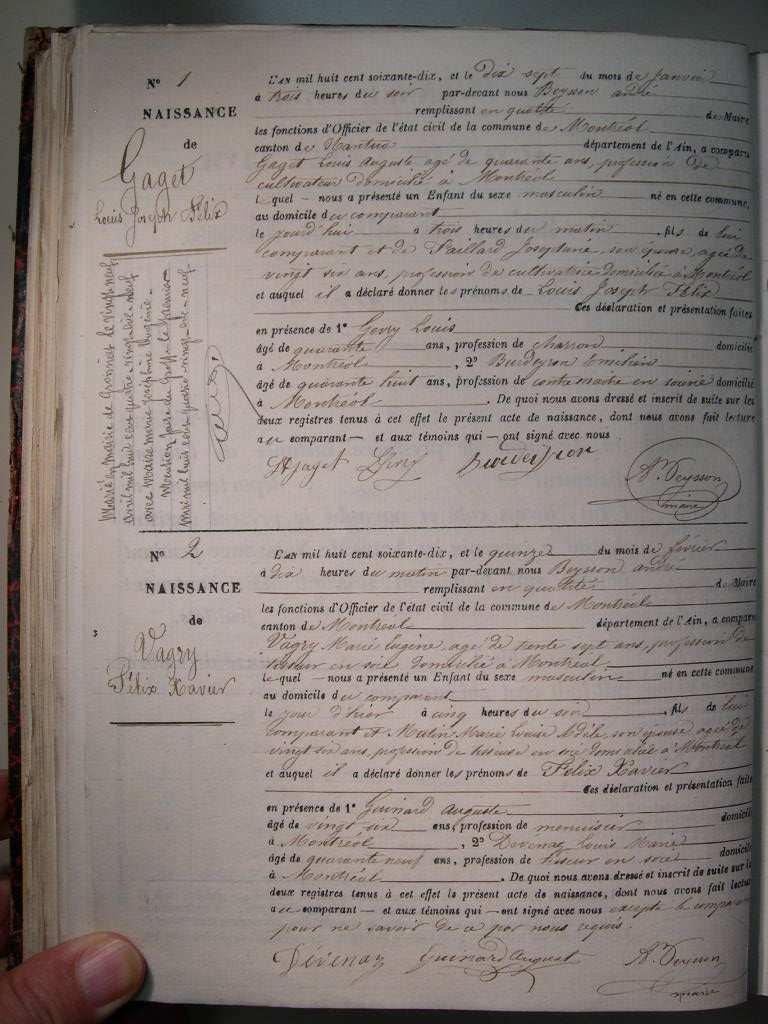 N° 1
NAISSANCE
de
Gaget
Louis Joseph Félix
Marié en mairie de Groissiat le vingt neuf
avril mil huit cent quatre-vingt-dix-neuf
avec Marie Joséphine Eugénie
mil huit cent quatre-vingt-dix-neuf
L'AN mil huit cent soixante-dix, et le dix sept du mois de janvier
à trois heures du soir par-devant nous Beysson André
remplissant en qualité de Maire
les fonctions d'Officier de l'état civil de la commune de Montréal
canton de Nantua département de l'Ain, a comparu
Gaget Louis Auguste agé de quarante ans, profession de
cultivateur domicilié à Montréal
lequel — nous a présenté un Enfant du sexe masculin né en cette commune,
au domicile du comparant
le jourd'hui à trois heures du matin, fils de lui
comparant et de Paillard Josephine, son épouse, agée de
vingt six ans, profession de cultivatrice domiciliée à Montréal
et auquel il a déclaré donner les prénoms de Louis Joseph Félix
Ces déclaration et présentation faites
en présence de 1° Gevry Louis
âgé de quarante ans, profession de charron domicilié
à Montréal, 2° Burdeyron Emilien
âgé de quarante huit ans, profession de contre maitre en soierie domicilié
à Montréal. De quoi nous avons dressé et inscrit de suite sur les
deux registres tenus à cet effet le présent acte de naissance, dont nous avons fait lecture
au comparant — et aux témoins qui — ont signé avec nous
A. Beysson
maire
N° 2
NAISSANCE
de
Vagry
Félix Xavier
L'AN mil huit cent soixante-dix, et le quinze du mois de février
à dix heures du matin par-devant nous Beysson André
remplissant en qualité de Maire
les fonctions d'Officier de l'état civil de la commune de Montréal
canton de Montréal département de l'Ain, a comparu
Vagry Marie Eugène, agé de trente sept ans, profession de
tisseur en soie domicilié à Montréal
lequel — nous a présenté un Enfant du sexe masculin né en cette commune
au domicile du comparant
le jour d'hier à cinq heures du soir, fils de lui
comparant et Mutin Marie Louise Adèle, son épouse agée de
vingt six ans, profession de tisseuse en soie domiciliée à Montréal
et auquel il a déclaré donner les prénoms de Félix Xavier
Ces déclaration et présentation faites
en présence de 1° Guinard Auguste
âgé de vingt six ans, profession de menuisier domicilié
à Montréal, 2° Devenaz Louis Marie
âgé de quarante neuf ans, profession de tisseur en soie domicilié
à Montréal. De quoi nous avons dressé et inscrit de suite sur les
deux registres tenus à cet effet le présent acte de naissance, dont nous avons fait lecture
au comparant — et aux témoins qui — ont signé avec nous excepté le comparant
pour ne savoir de ce par nous requis.
Devenaz Guinard August A. Beysson
maire